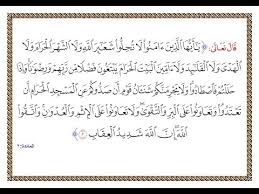 قال تعالى: ﴿ يَٰٓأَيُّهَا ٱلَّذِينَ ءَامَنُوا۟ لَا تُحِلُّوا۟ شَعَٰٓئِرَ ٱللَّهِ وَلَا ٱلشَّهْرَ ٱلْحَرَامَ وَلَا
ٱلْهَدْىَ وَلَا ٱلْقَلَٰٓئِدَ وَلَآ ءَآمِّينَ ٱلْبَيْتَ ٱلْحَرَامَ يَبْتَغُونَ فَضْلًا مِّن رَّبِّهِمْ وَرِضْوَٰنًا وَإِذَا
حَلَلْتُمْ فَٱصْطَادُوا۟ وَلَا يَجْرِمَنَّكُمْ شَنَـَٔانُ قَوْمٍ أَن صَدُّوكُمْ عَنِ ٱلْمَسْجِدِ ٱلْحَرَامِ أَن
تَعْتَدُوا۟ وَتَعَاوَنُوا۟ عَلَى ٱلْبِرِّ وَٱلتَّقْوَىٰ وَلَا تَعَاوَنُوا۟ عَلَى ٱلْإِثْمِ وَٱلْعُدْوَٰنِ وَٱتَّقُوا۟
ٱللَّهَ إِنَّ ٱللَّهَ شَدِيدُ ٱلْعِقَابِ ﴾ المائدة: ٢